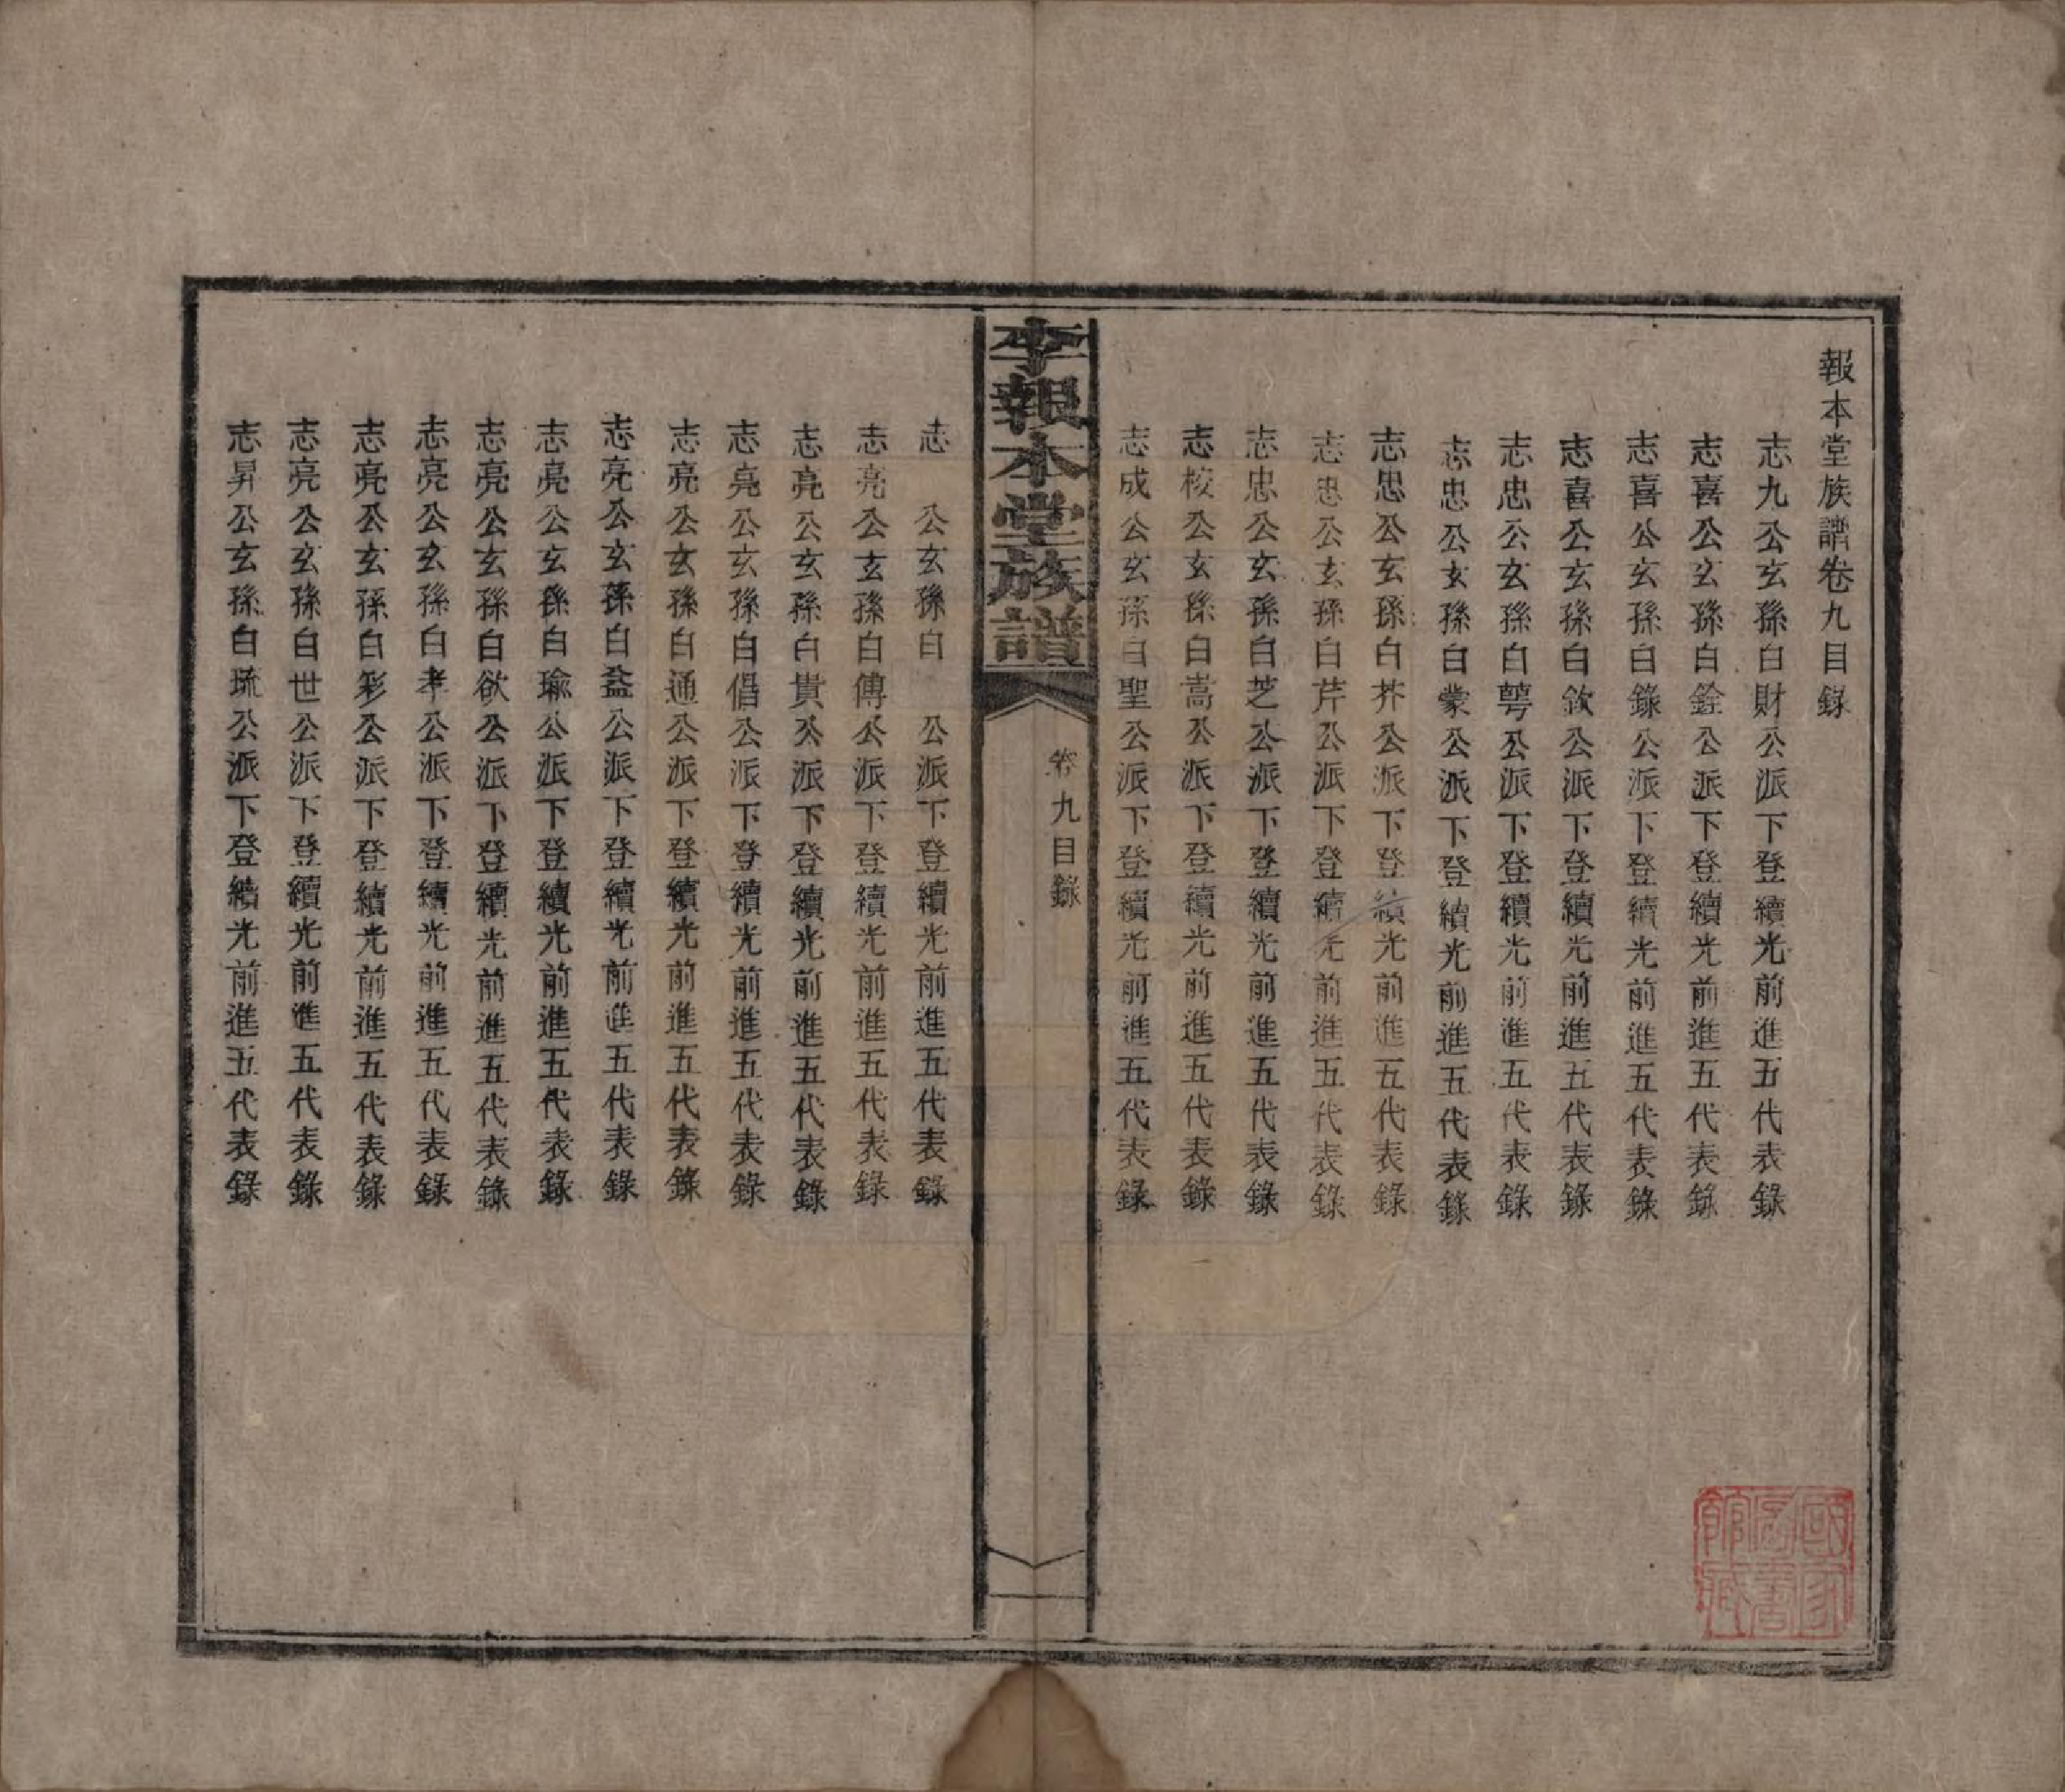 報本堂族譜卷九目錄
志九公玄孫白財公派下登續光前進五代表錄
志喜公玄孫白銓公派下登續光前進五代表錄
志喜公玄孫白錄公派下登續光前進五代表錄
志喜公玄孫白欽公派下登續光前進五代表錄
志忠公玄孫白蕚公派下登續光前進五代表錄
志忠公玄孫白蒙公派下登續光前進五代表錄
志忠公玄孫白芥公派下登續光前進五代表錄
志忠公玄孫白芹公派下登續光前進五代表錄
志忠公玄孫白芝公派下登續光前進五代表錄
志梭公玄孫白嵩公派下登續光前進五代表錄
志成公玄孫白聖公派下登續光前進五代表錄
李報本堂族譜
卷九目錄
志 公玄孫白 公派下登續光前進五代表錄
志亮公玄孫白傳公派下登續光前進五代表錄
志亮公玄孫白貴公派下登續光前進五代表錄
志亮公玄孫白倡公派下登續光前進五代表錄
志亮公玄孫白通公派下登續光前進五代表錄
志亮公玄孫白益公派下登續光前進五代表錄
志亮公玄孫白瑜公派下登續光前進五代表錄
志亮公玄孫白欲公派下登續光前進五代表錄
志亮公玄孫白孝公派下登續光前進五代表錄
志亮公玄孫白彩公派下登續光前進五代表錄
志亮公玄孫白世公派下登續光前進五代表錄
志昇公玄孫白琉公派下登續光前進五代表錄
國家圖書館藏